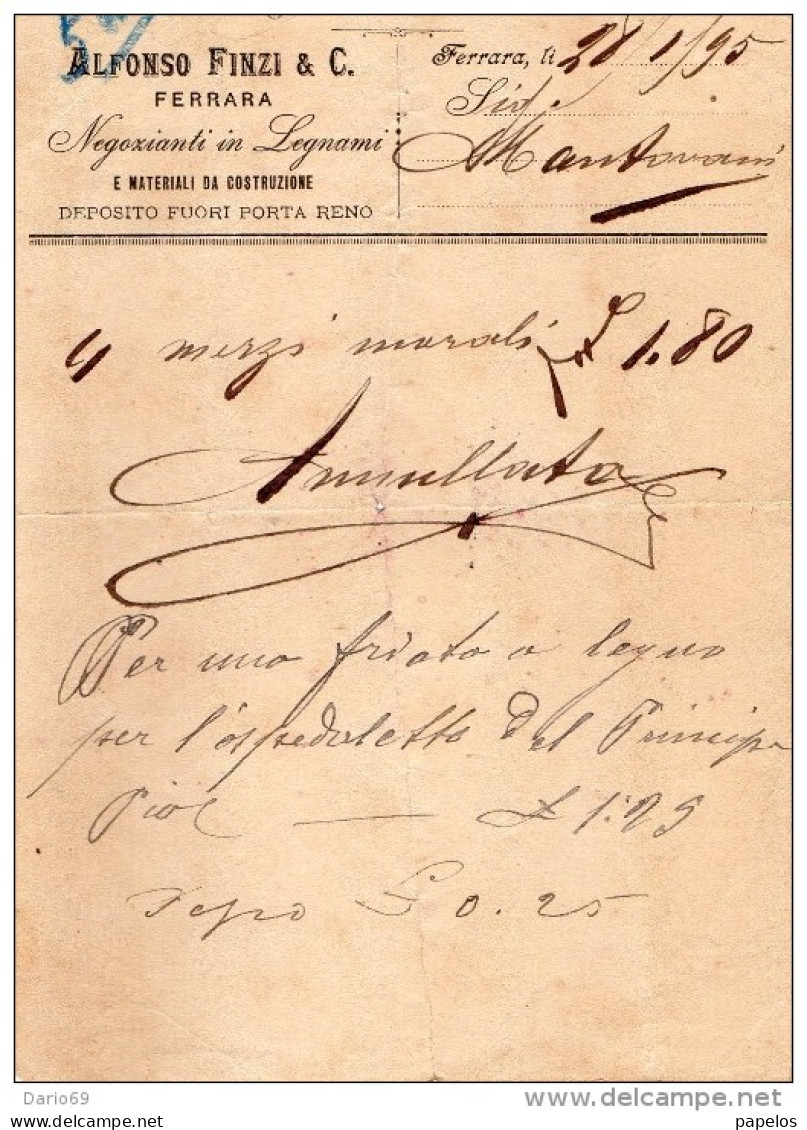 ALFONSO FINZI & C.
FERRARA
Negozianti in Legnami
E MATERIALI DA COSTRUZIONE
DEPOSITO FUORI PORTA RENO
Ferrara, li 28/1/95
Sig.
Mantovani
4 mezzi morali £ 1.80
Annullata
Per uno a legno
per l'ospedaletto del Principe
Pio £ 1:25
£ 0.25
Dario69
delcampe.net
papelos